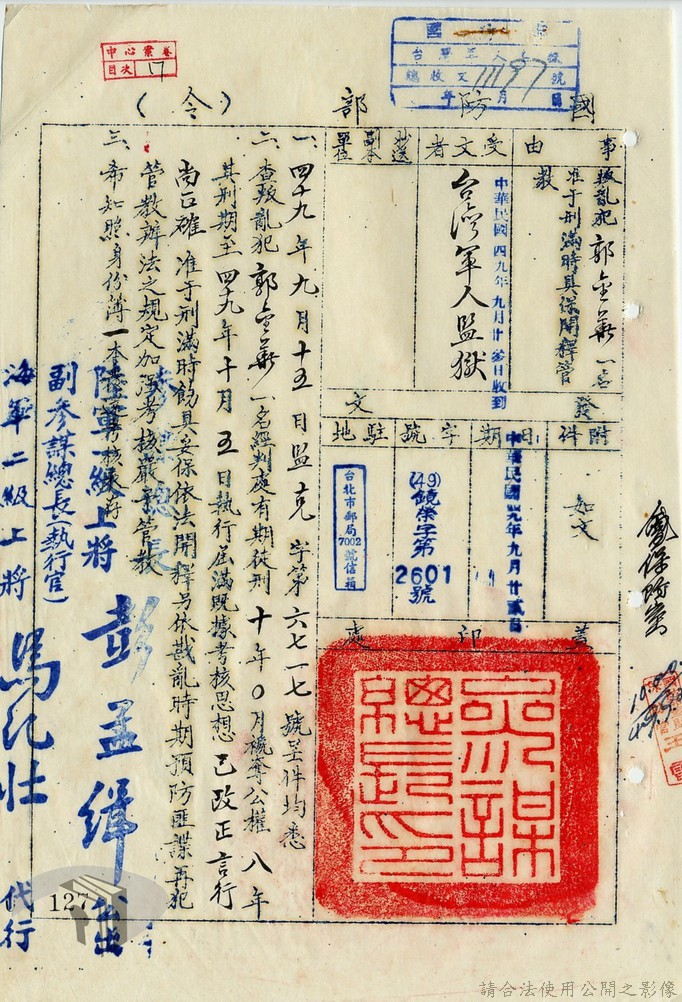 中心案卷
目次 17
國防部（令）
事由
叛亂犯郭金華一名
准于刑滿時具保開釋管
教
受文者
台灣軍人監獄
中華民國四九年九月廿參日收到
抄送副本單位
發文
附件
如文
日期
中華民國四九年九月廿貳日
字號
(49)
2601
號
駐地
台北市郵局
7002
號信箱
蓋印處
參謀總長印
一、四十九年九月十五日監克字第六七一七號呈件均悉
二、查叛亂犯郭金華一名經判處有期徒刑十年0月褫奪公權八年
其刑期至四九年十月五日執行屆滿既據考核思想已改正言行
尚正確准于刑滿時飭具妥保依法開釋另依戡亂時期預防匪諜再犯
管教辦法之規定加強考核嚴予管教
三、希知照身份薄一本
參謀總長
陸軍一級上將 彭孟緝
副參謀總長(執行官)
海軍二級上將 馬紀壯 代行
127
請合法使用公開之影像